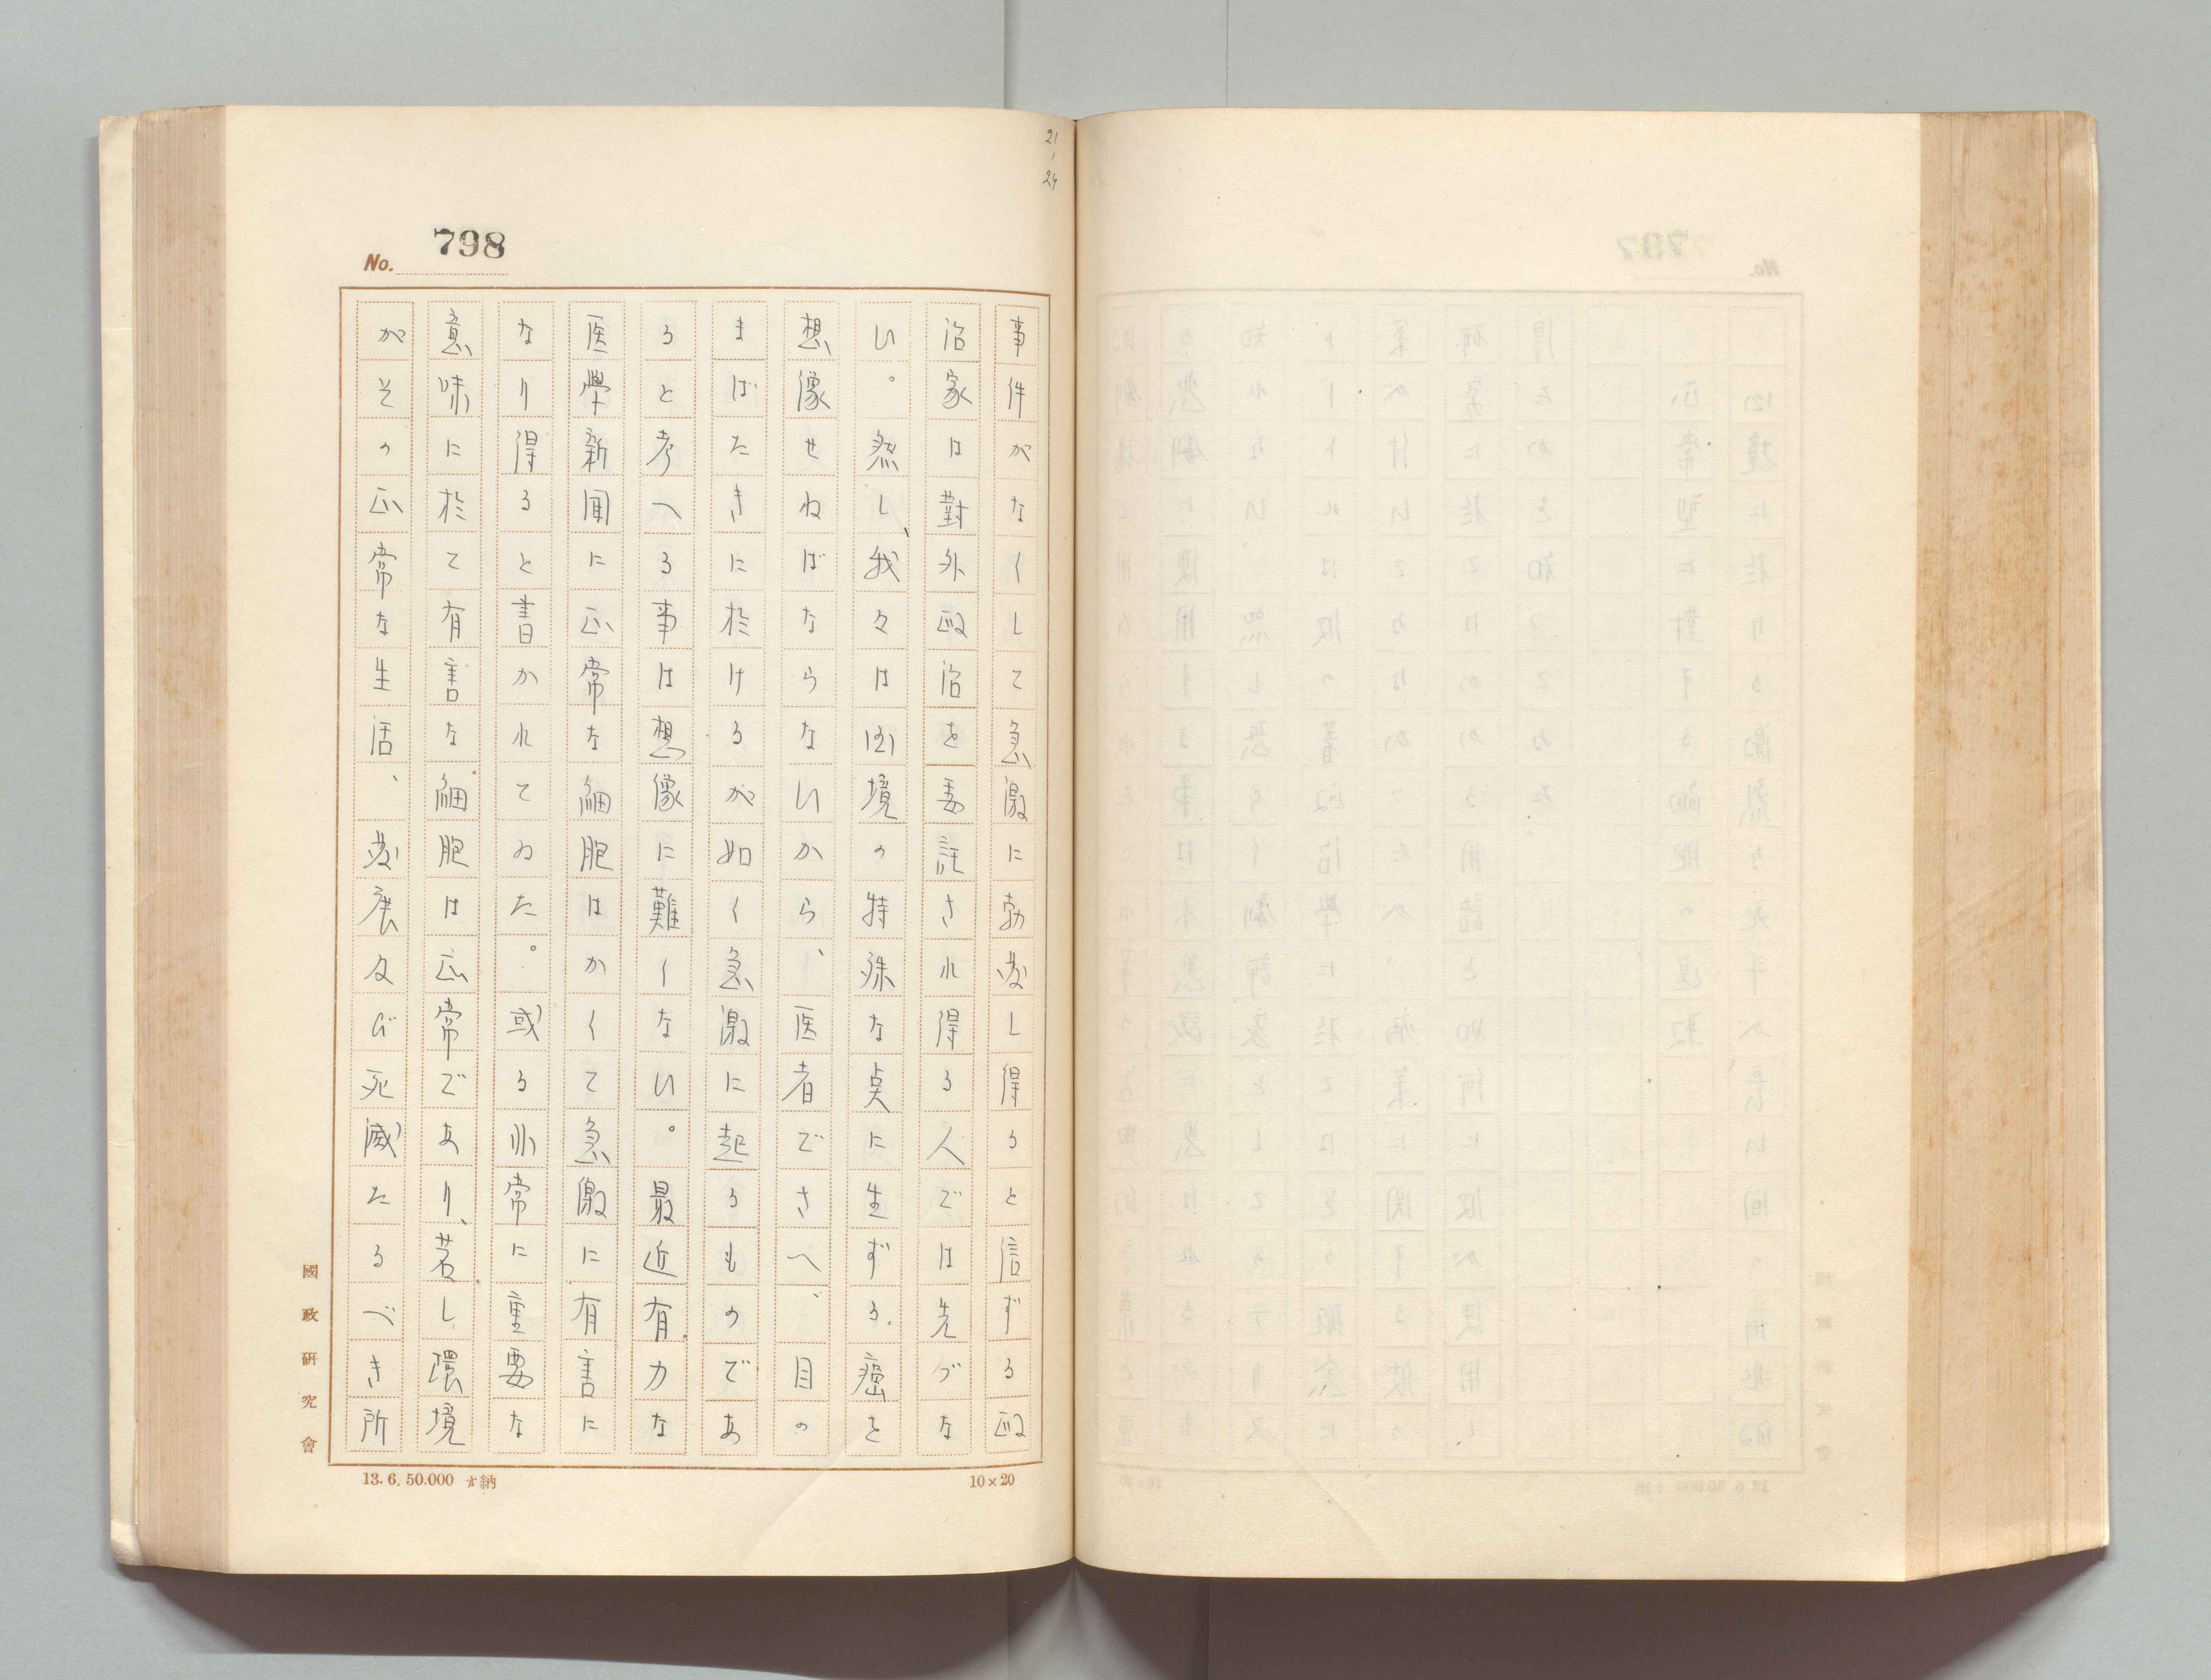 21
24
No. 798
事件がなくして急激に勃発し得ると信ずる政
治家は對外政治を委託され得る人では先づな
い。然し、我々は國境の特殊な点に生ずる癌を
想像せねばならないから、医者でさへ、目の
まばたきに於けるが如く急激に起るものであ
ると考へる事は想像に難くない。最近有力な
医學新聞に正常な細胞はかくて急激に有害に
なり得ると書かれてゐた。或る非常に重要な
意味に於て有害な細胞は正常であり、若し環境
がその正常な生活、発展及び死滅たるべき所
國政研究會
13.6.50.000 納
10×20